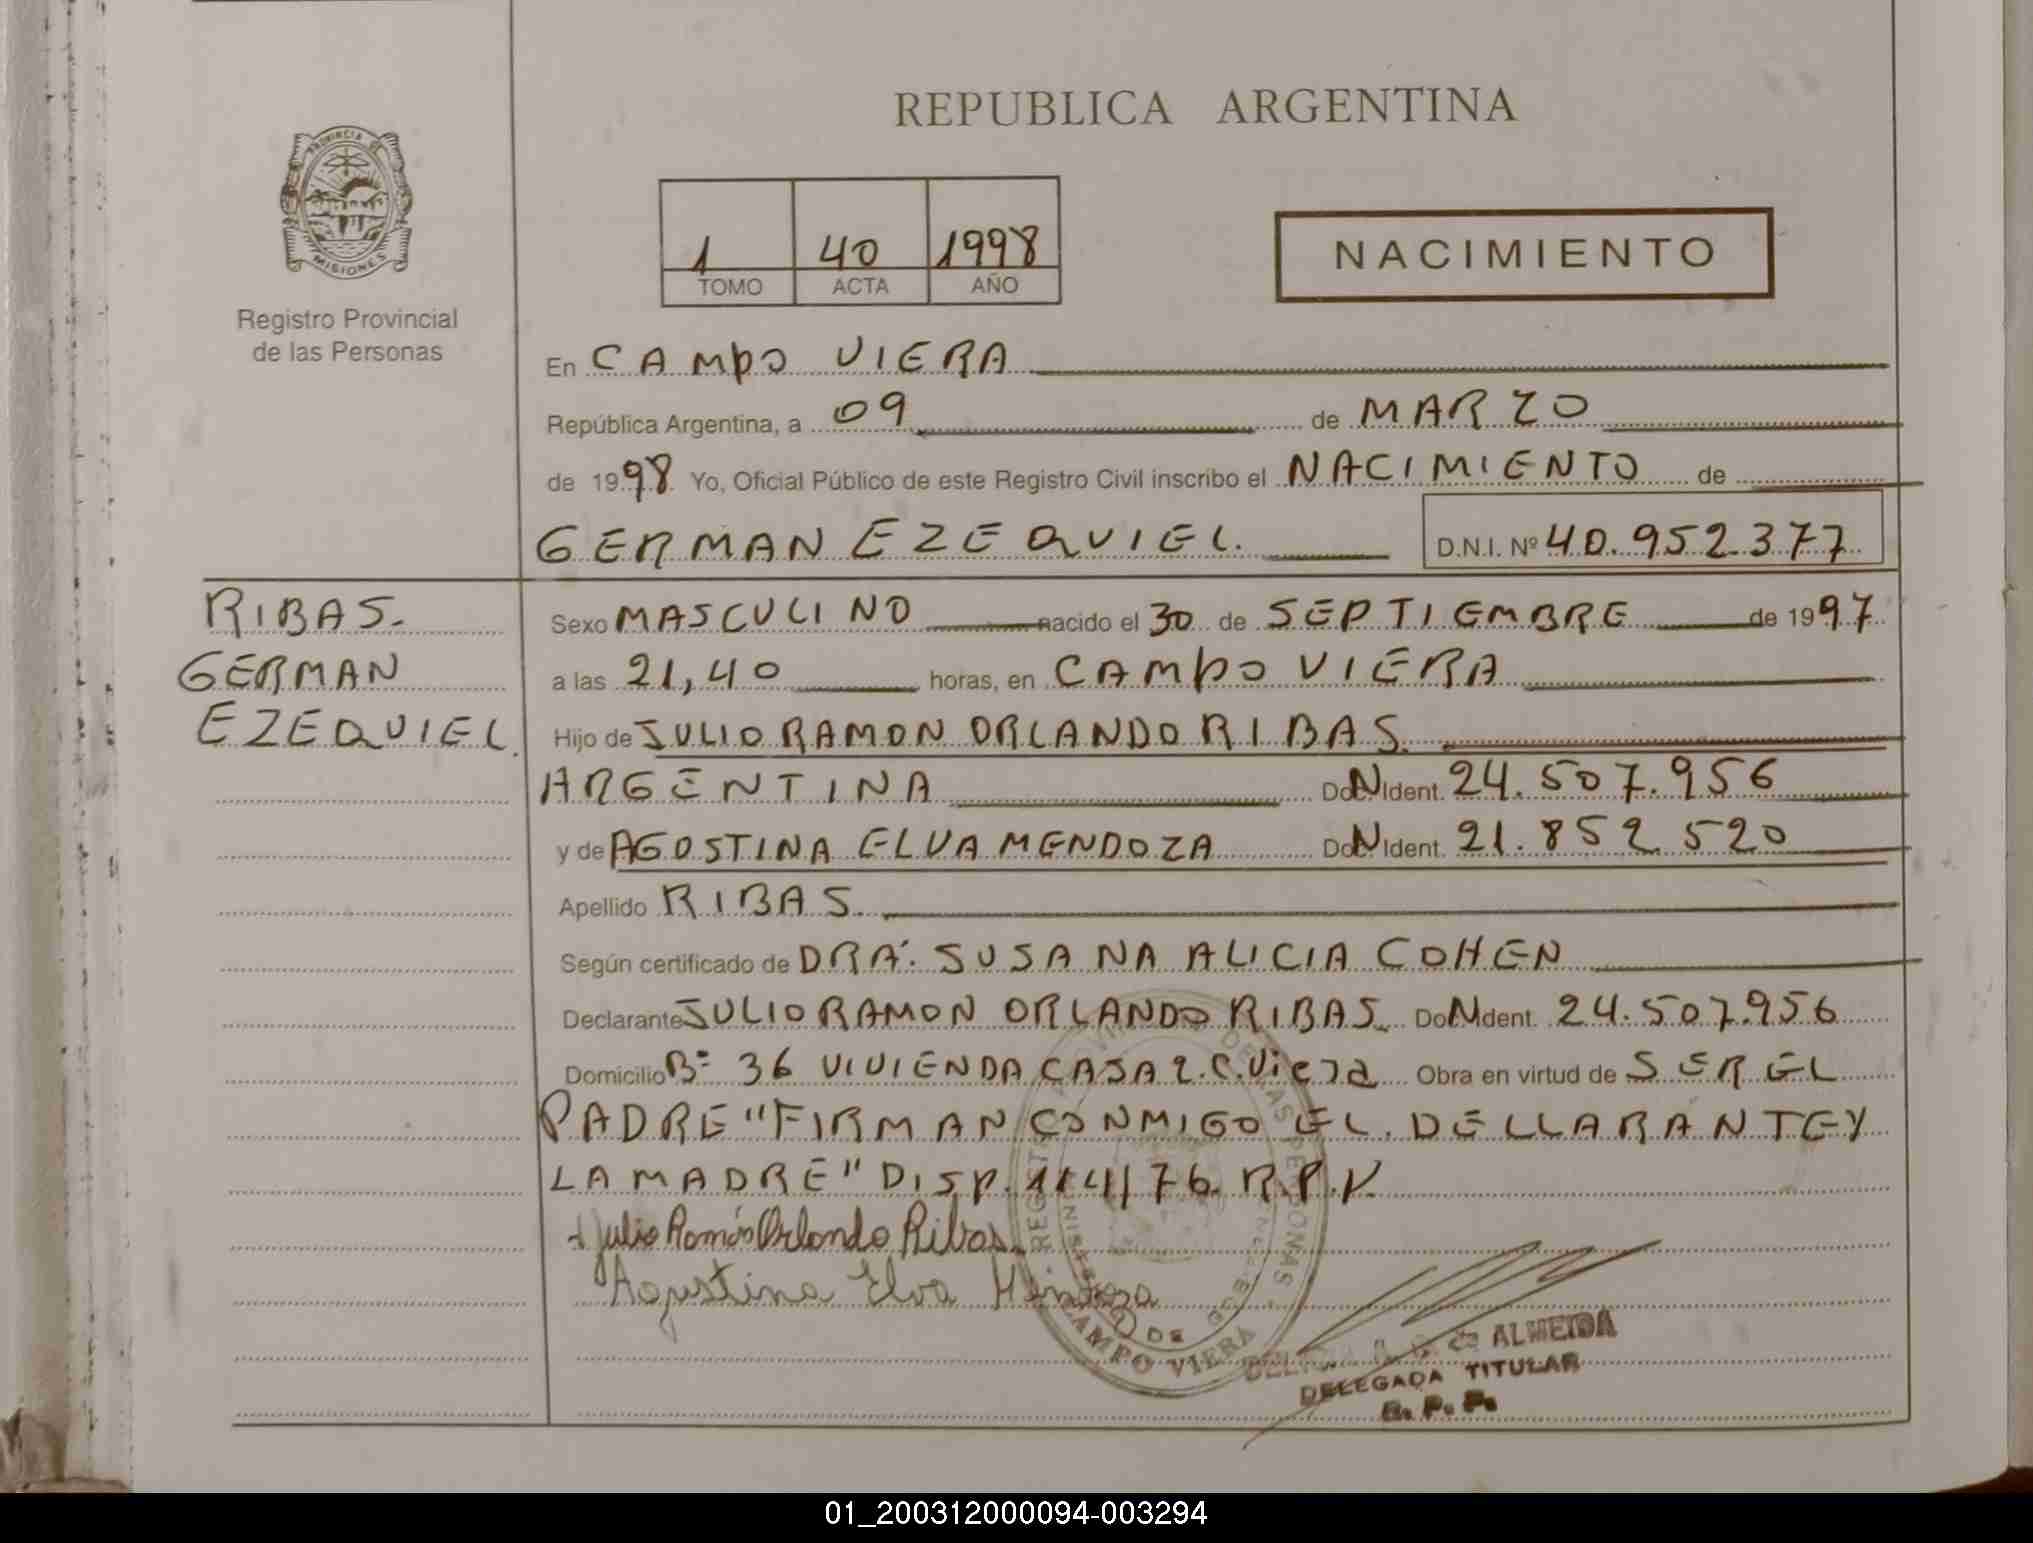 REPUBLICA ARGENTINA
PROVINCIA DE
MISIONES
Registro Provincial
de las Personas
1 40 1998
TOMO ACTA AÑO
NACIMIENTO
En CAMPO VIERA
República Argentina, a 09 de MARZO
de 1998 Yo, Oficial Público de este Registro Civil inscribo el NACIMIENTO de
GERMAN EZEQUIEL. D.N.I. Nº 40.952.377
RIBAS.
GERMAN
EZEQUIEL.
Sexo MASCULINO nacido el 30 de SEPTIEMBRE de 1997
a las 21,40 horas, en CAMPO VIERA
Hijo de JULIO RAMON ORLANDO RIBAS.
ARGENTINA DocN Ident. 24.507.956
y de AGOSTINA ELVA MENDOZA DocN Ident. 21.852.520
Apellido RIBAS.
Según certificado de DRA. SUSANA ALICIA COHEN
Declarante JULIO RAMON ORLANDO RIBAS. DocN Ident. 24.507.956
Domicilio Bº 36 VIVIENDA CASA 2. C. Viera Obra en virtud de SER EL
PADRE "FIRMAN CONMIGO EL DELLARANTE Y
LA MADRE" DISP. 114/76. R.P.V.
Julio Ramón Orlando Ribas
Agustina Elva Mendoza
CAMPO VIERA
DE ALMEIDA
DELEGADA TITULAR
01_200312000094-003294